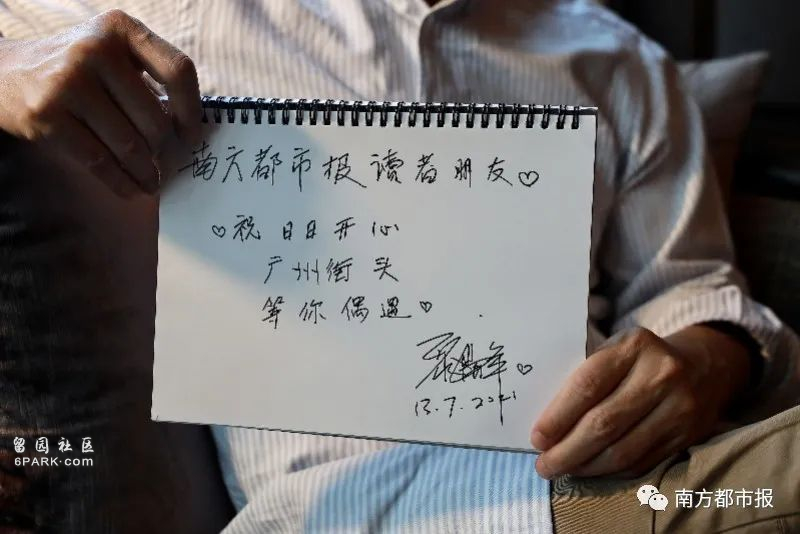 南方都市报读者朋友♡
♡祝日日开心
广州街头
等你偶遇♡
♡
13.7.2021
留园社区
6PARK·com
南方都市报